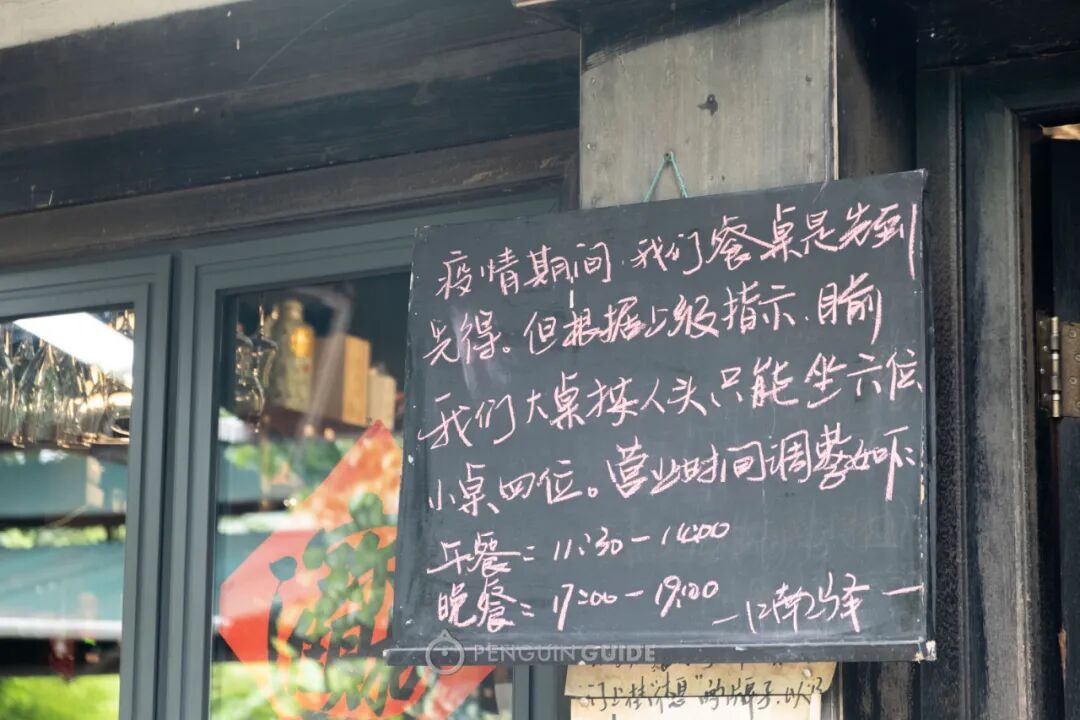 疫情期间.我们餐桌是先到
先得。但根据上级指示.目前
我们大桌按人头只能坐六位
小桌四位。营业时间调整如下:
午餐:11:30-14:00
晚餐:17:00-19:00
—江南驿—
PENGUIN GUIDE
门上挂"休息"的牌子,以